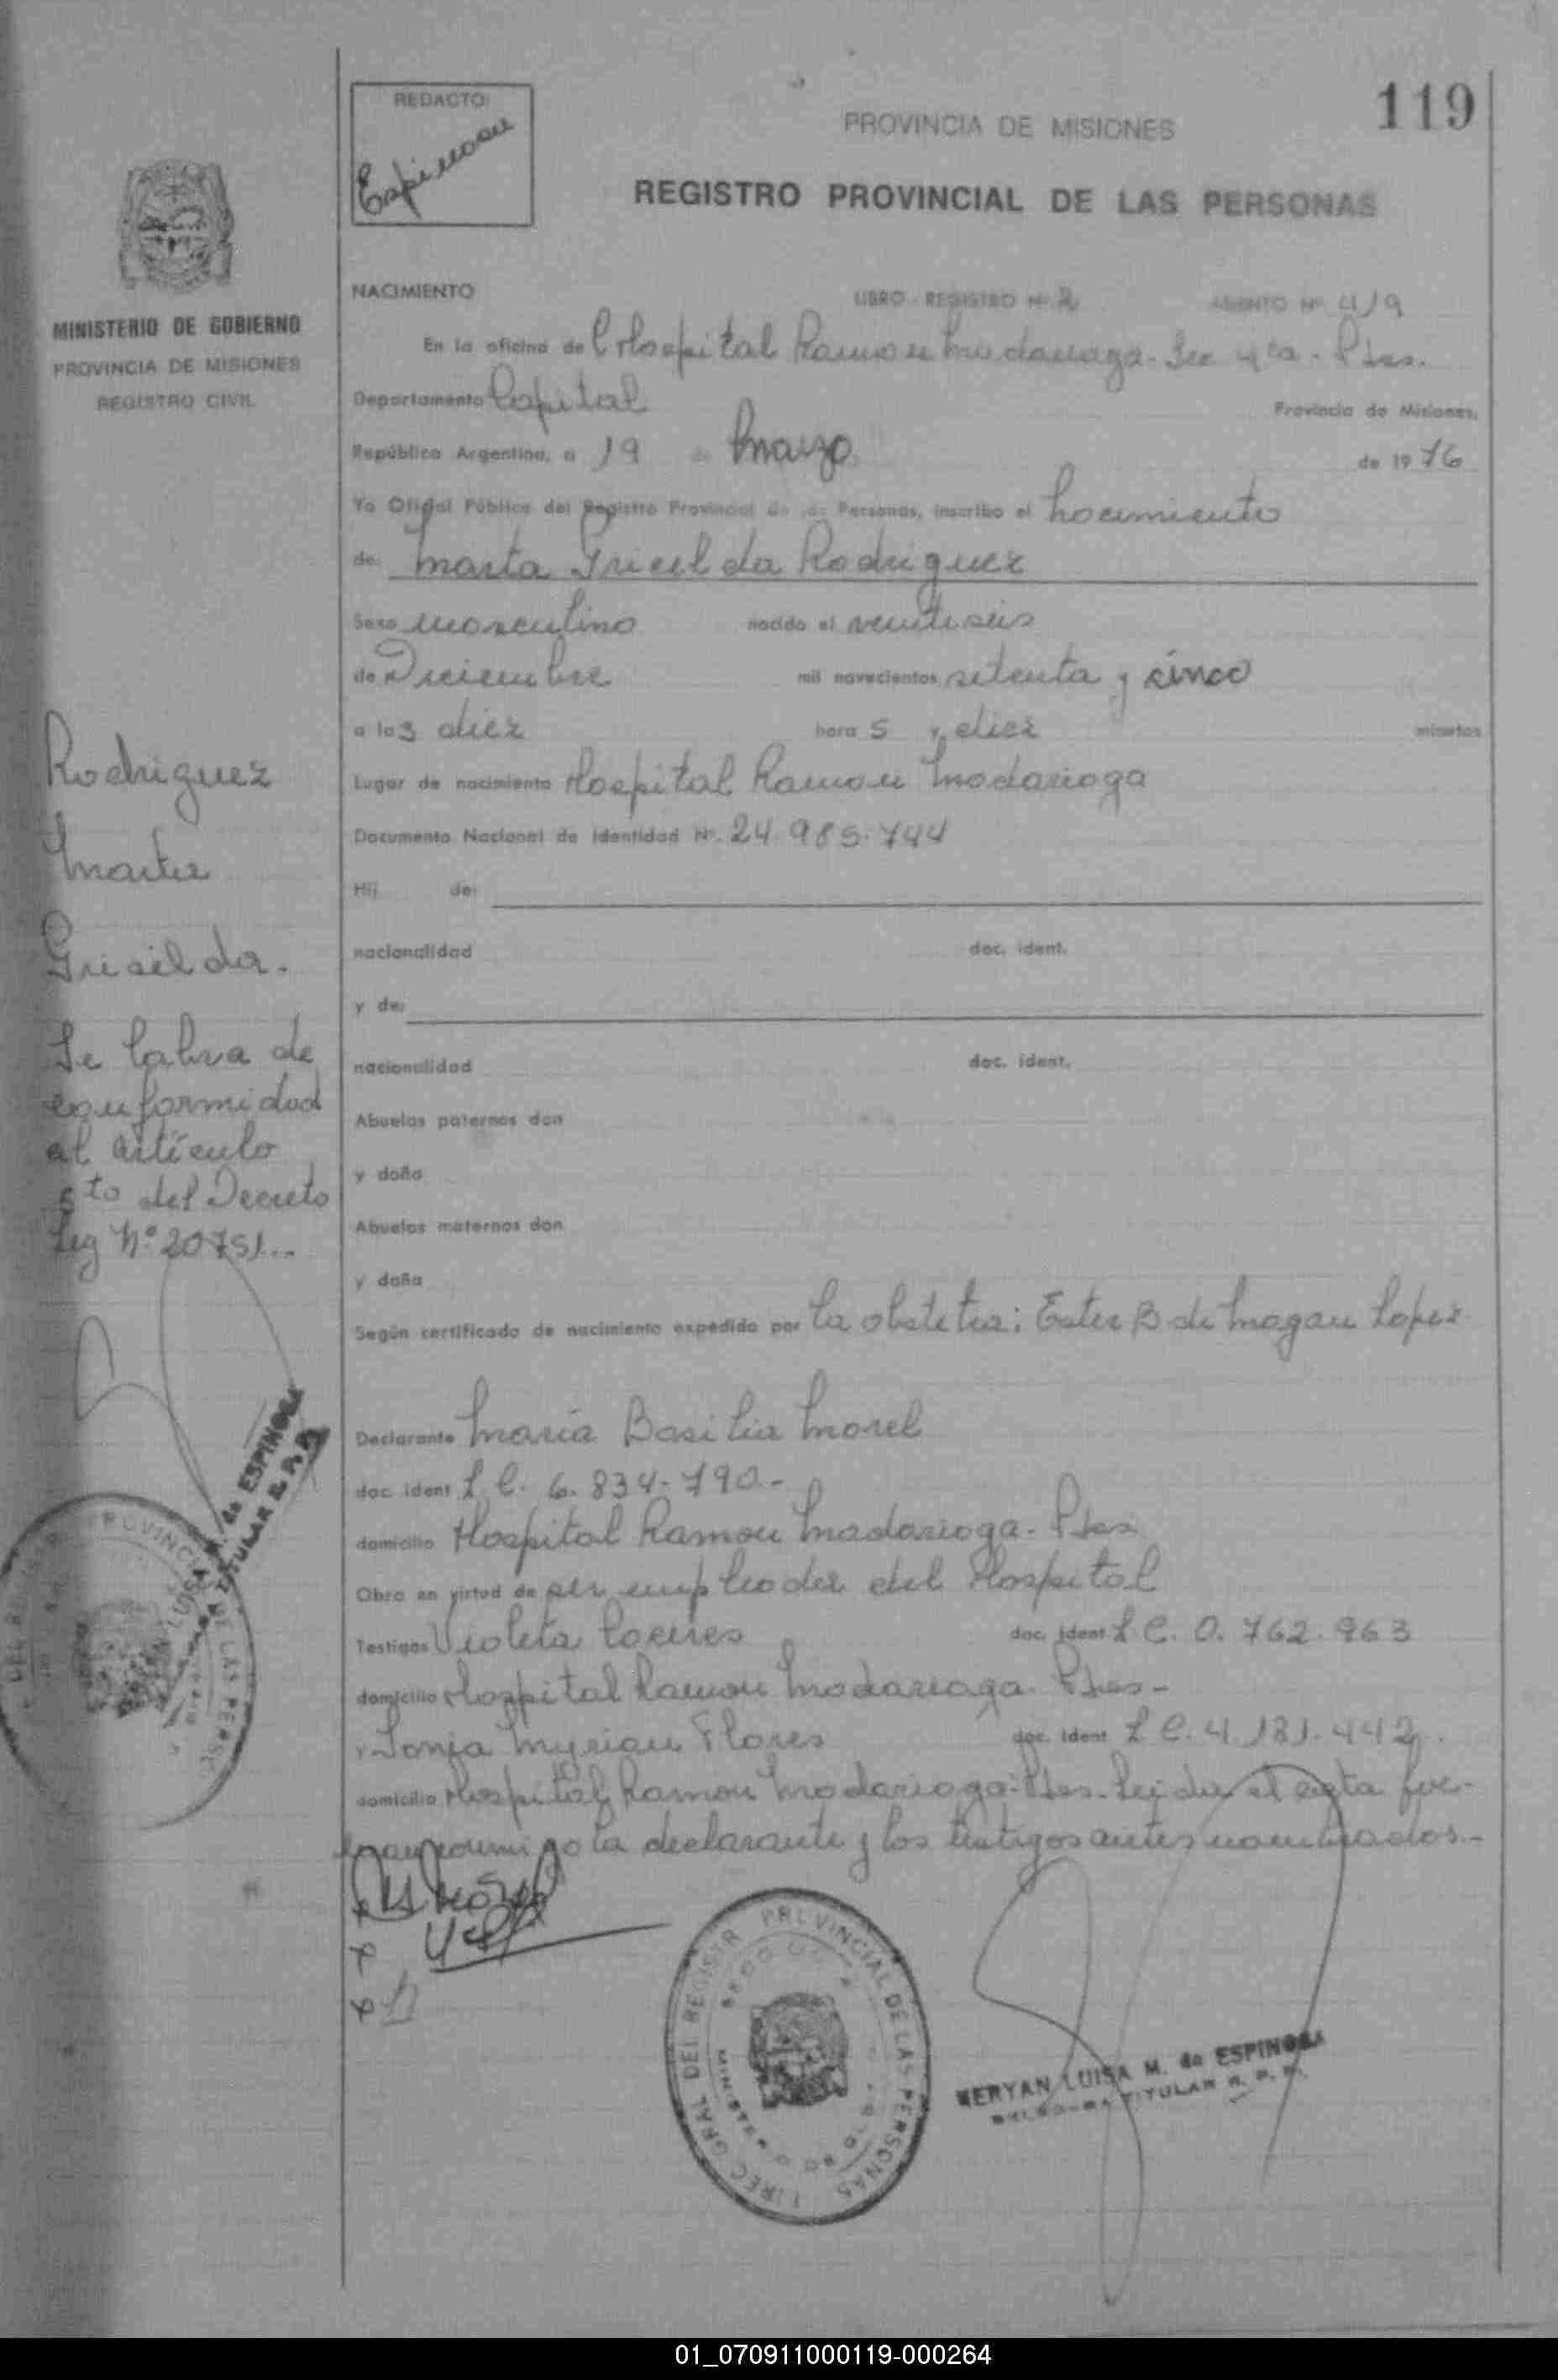 119
REDACTO:
Espinosa
PROVINCIA DE MISIONES
REGISTRO PROVINCIAL DE LAS PERSONAS
MINISTERIO DE GOBIERNO
PROVINCIA DE MISIONES
REGISTRO CIVIL
NACIMIENTO
LIBRO - REGISTRO Nº 2
ASIENTO Nº 119
En la oficina de Hospital Ramon Madariaga - Sec 4ta. Pdas.
Departamento Capital Provincia de Misiones,
República Argentina, a 19 de Marzo de 1976
Yo Oficial Público del Registro Provincial de las Personas, inscribo el Nacimiento
de: Marta Gricelda Rodriguez
Sexo masculino nacido el veintiseis
de Diciembre mil novecientos setenta y cinco
a las diez horas y diez minutos
Lugar de nacimiento Hospital Ramon Madariaga
Documento Nacional de Identidad Nº. 24.985.744
Hij de:
nacionalidad doc. ident.
y de:
nacionalidad doc. ident.
Abuelos paternos don
y doña
Abuelos maternos don
y doña
Según certificado de nacimiento expedido por la obstetra: Ester B de Magan Lopez
Declarante Maria Basilia Morel
doc. ident L.C. 6.834.790.-
domicilio Hospital Ramon Madariaga - Pdas
Obra en virtud de ser empleada del Hospital
Testigos Violeta doc. ident L.C. 0.762.963
domicilio Hospital Ramon Madariaga Pdas -
y Sonja Myrian Flores doc. ident L C. 4.181.442.
domicilio Hospital Ramon Madariaga - Pdas. Leida el acta fir-
man conmigo la declarante y los testigos antes nombrados.-
Rodriguez
Marta
Griselda.
Se labra de
conformidad
al artículo
5to del Decreto
Ley Nº 20751...
LUISA M. de ESPINOSA
TITULAR R. P. P.
DIREC GRAL DEL REGISTR PROVINCIAL DE LAS PERSONAS
MERYAN LUISA M. de ESPINOSA
DELEGADA TITULAR R. P. P.
01_070911000119-000264